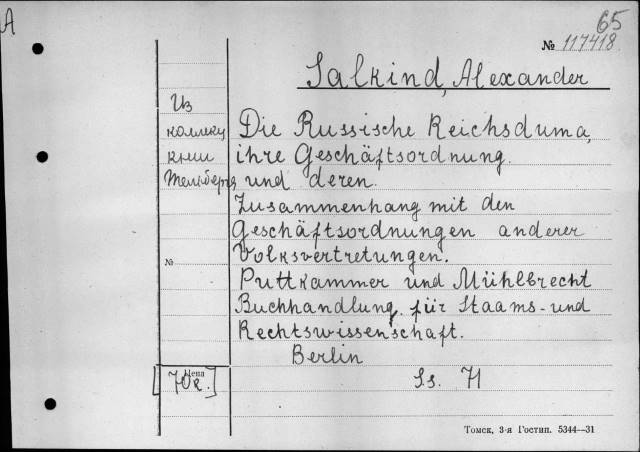 A
65
№ 117418
Salkind, Alexander
Из
коллек
кции
Тельберга
Die Russische Reichsduma,
ihre Geschäftsordnung.
und deren.
Zusammenhang mit den
Geschäftsordnungen anderer
Volksvertretungen.
№
Puttkammer und Mühlbrecht
Buchhandlung für Staams- und
Rechtswissenschaft.
Berlin
Цена
S.s. 71
Томск, 3-я Гостип. 5344—31